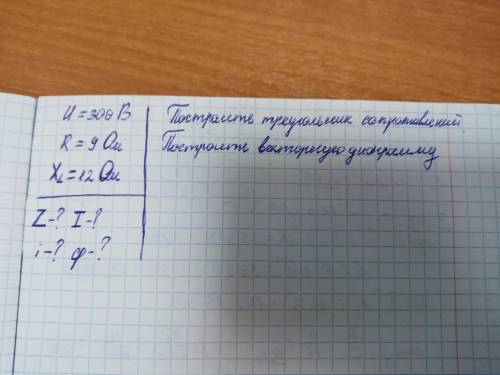 U = 300 В
R = 9 Ом
XL = 12 Ом
Z-? I-?
i-? φ-?
Построить треугольник сопротивлений
Построить векторную диаграмму